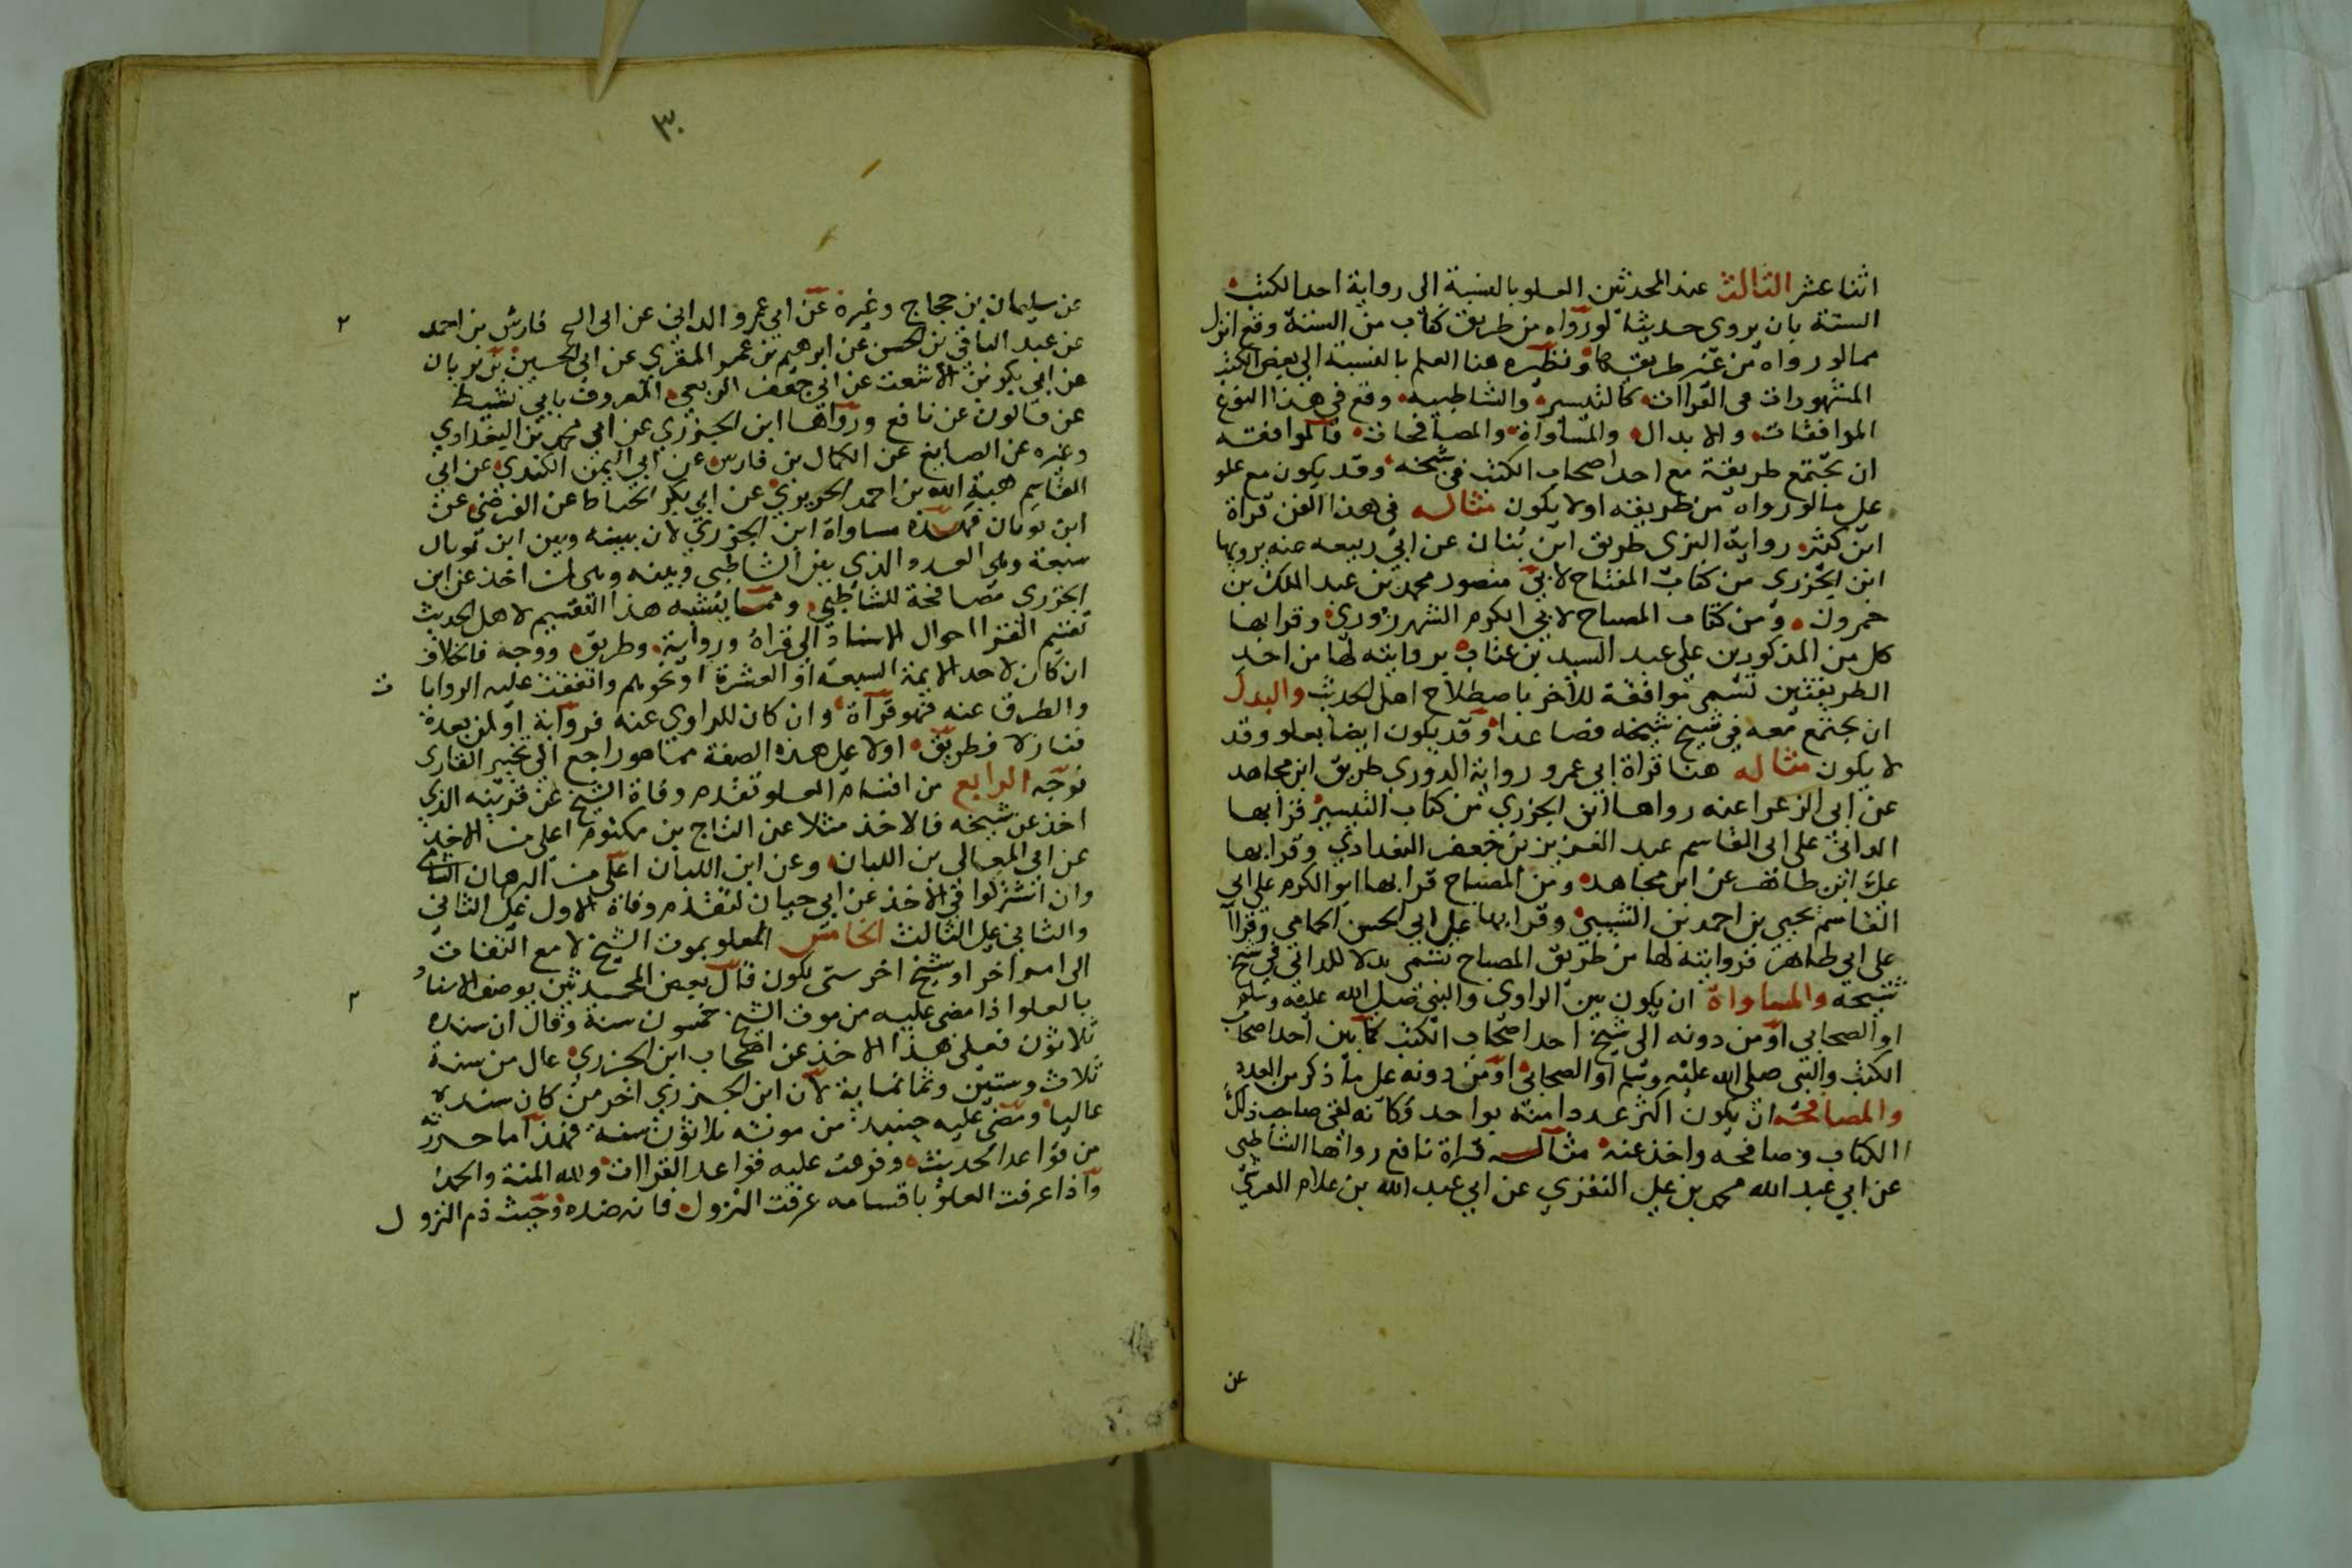 اثنا عشر الثالث عند المحدثين العلو بالنسبة الى رواية احد الكتب
الستة بان يروى حديثا لو رواه من طريق كتاب من الستة وقع انزل
مما لو رواه من غير طريقها ونظيره هنا العلم بالنسبة الى بعض الكتب
المشهورات فى القراات كالتيسير والشاطبيه وقع في هذا النوع
الموافقات والابدال والمساواة والمصافحات فالموافقه
ان تجتمع طريقة مع احد اصحاب الكتب في شيخه وقد يكون مع علو
على ما لو رواه من طريقه اولا يكون مثاله فى هذا الفن قراة
ابن كثير رواية البزى طريق ابن بنان عن ابي ربيعه عنه يرويها
ابن الجزرى من كتاب المفتاح لابي منصور محمد بن عبد الملك بن
خيرون ومن كتاب المصباح لابي الكرم الشهرزورى وقرا بها
كل من المذكورين على عبد السيد بن عتاب بروايته لها من احد
الطريقتين تسمى موافقة للاخر باصطلاح اهل الحديث والبدل
ان يجتمع معه في شيخ شيخه فصاعدا وقد يكون ايضا بعلو وقد
لا يكون مثاله هنا قراة ابي عمرو رواية الدوري طريق ابن مجاهد
عن ابى الزعرا عنه رواها ابن الجزري من كتاب التيسير قرا بها
الدانى على ابى القاسم عبد العزيز بن جعفر البغدادي وقرا بها
على ابن طاهر عن ابن مجاهد ومن المصباح قرا بها ابو الكرم على ابي
القاسم يحيى بن احمد بن السيبى وقرا بها على ابي الحسن الحمامى وقرا
على ابي طاهر فروايته لها من طريق المصباح تسمى بدلا للدانى في شيخ
شيخه والمساواة ان يكون بين الراوى والنبي صلى الله عليه وسلم
او الصحابى او من دونه الى شيخ احد اصحاب الكتب كما بين احد اصحاب
الكتب والنبى صلى الله عليه وسلم او الصحابى او من دونه على ما ذكر من العدد
والمصافحه ان يكون اكثر عددا منه بواحد وكانه لقى صاحب ذلك
الكتاب وصافحه واخذ عنه مثاله قراة نافع رواها الشاطبى
عن ابي عبد الله محمد بن على النفزي عن ابي عبد الله بن غلام الفرس
عن
٣٠
عن سليمان بن حجاج وغيره عن ابي عمرو الدانى عن ابى الفتح فارس بن احمد
عن عبد الباقي بن الحسن عن ابرهيم بن عمر المقري عن ابى الحسين بن بويان
عن ابي بكر بن الاشعث عن ابي جعفر الربعي المعروف بابي نشيط
عن قالون عن نافع ورواها ابن الجزري عن ابي محمد بن البغدادي
وغيره عن الصايغ عن الكمال بن فارس عن ابي اليمن الكندي عن ابي
القاسم هبة الله بن احمد الحريري عن ابي بكر الخياط عن الفرضى عن
ابن بويان فهذه مساواة ابن الجزري لان بينه وبين ابن بويان
سبعة وهى العدد الذي بين الشاطبي وبينه وهى لمن اخذ عن ابن
الجزري مصافحة للشاطبي ومما يشبه هذا التقسيم لاهل الحديث
تقسيم القرا احوال الاسناد الى قراة ورواية وطريق ووجه فالخلاف
ان كان لاحد الايمة السبعة او العشرة او نحوهم واتفقت عليه الروايات
والطرق عنه فهو قراة وان كان للراوي عنه فرواية او لمن بعده
فنازلا فطريق اولا على هذه الصفة مما هو راجع الى تخيير القارى
فوجه الرابع من اقسام العلو تقدم وفاة الشيخ عن قرينه الذي
اخذ عن شيخه فالاخذ مثلا عن التاج بن مكتوم اعلى من الاخذ
عن ابي المعالى بن اللبان وعن ابن اللبان اعلى من البرهان الشامي
وان اشتركوا في الاخذ عن ابي حيان لتقدم وفاة الاول على الثانى
والثانى على الثالث الخامس العلو بموت الشيخ لا مع التفات
الى امر اخر او شيخ اخر متى يكون قال بعض المحدثين يوصف الاسناد
بالعلو اذا مضى عليه من موت الشيخ خمسون سنة وقال ان منده
ثلاثون فعلى هذا الاخذ عن اصحاب ابن الجزري عال من سنة
ثلاث وستين وثمانماية لان ابن الجزري اخر من كان سنده
عاليا ومضى عليه حينئذ من موته ثلاثون سنة فهذا ما حررته
من قواعد الحديث وفرعت عليه قواعد القراات ولله المنة والحمد
واذا عرفت العلو باقسامه عرفت النزول فانه ضده وحيث ذم النزول